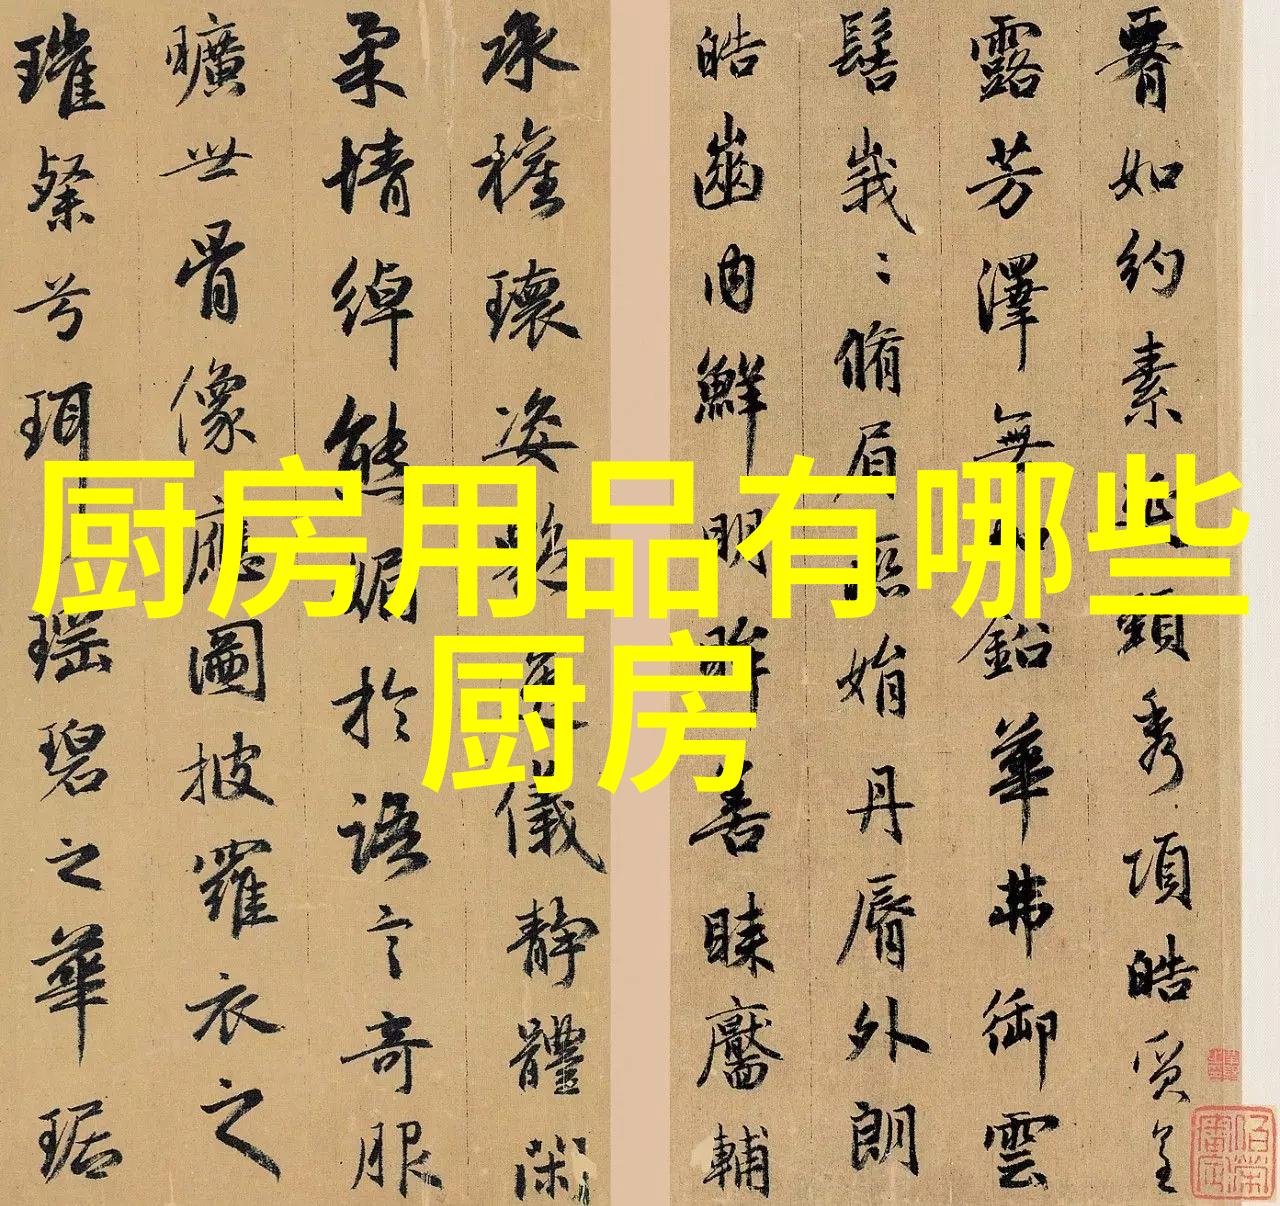 厨房用品有哪些
厨房
腰如約素延頸秀項皓質呈
露芳澤無加鉛華弗御雲
髻峩:脩眉聯娟丹脣外朗
皓齒內鮮明眸善睞靨輔
承權瓌姿艷逸儀靜體閑
柔情綽態媚於語言奇服
曠世骨像應圖披羅衣之
璀粲兮珥瑤碧之華琚